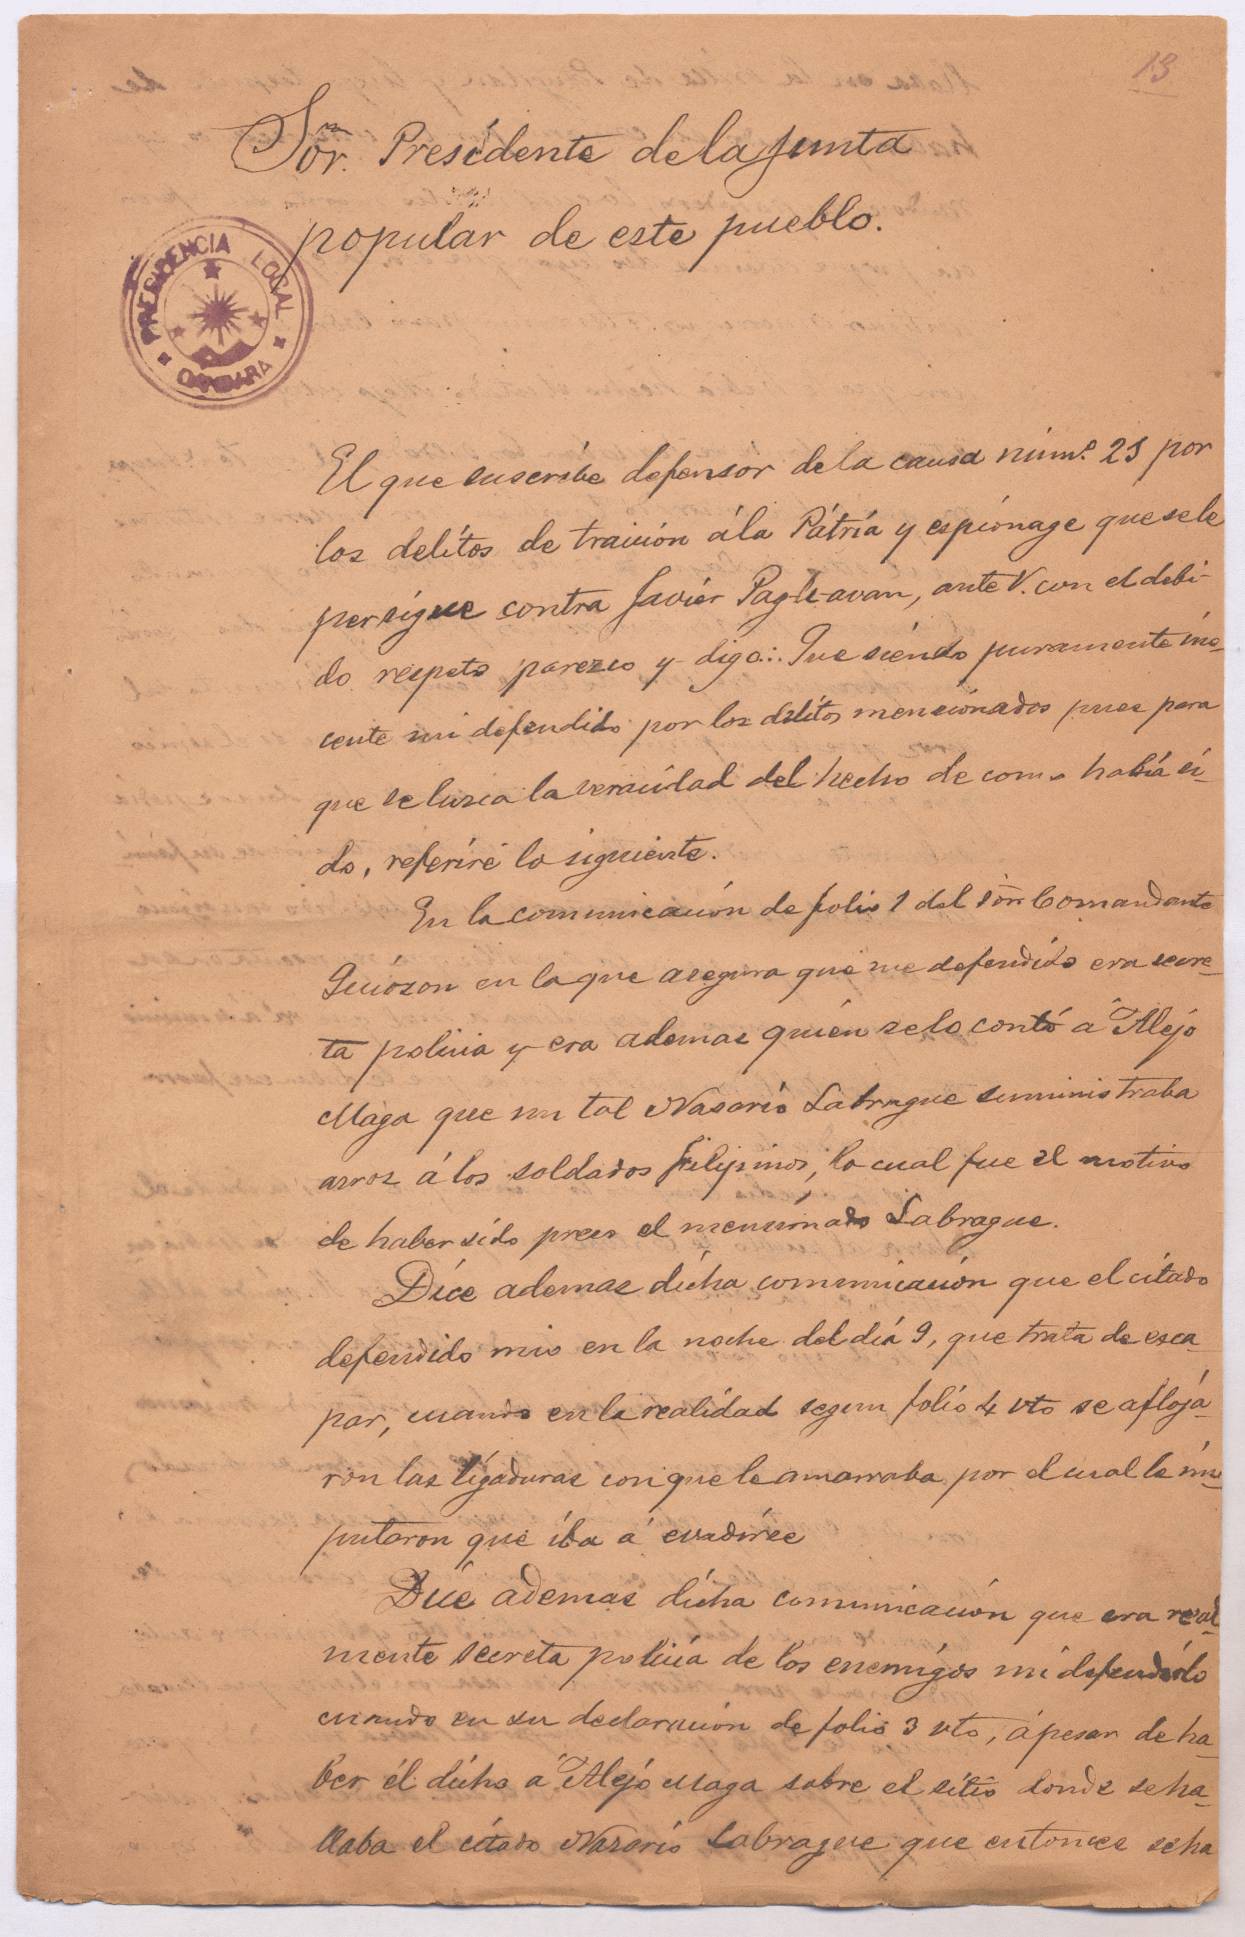 13
Sor. Presidente de la Junta
popular de este pueblo.
PRESIDENCIA LOCAL
El que suscribe defensor de la causa núm.º 23 por
los delitos de traición á la Pátria y espionage que se le
persigue contra Javier Pagl-avan, ante V. con el debi-
do respeto parezco y digo: Que siendo puramente ino-
cente mi defendido por los delitos mencionados pues para
que se luzca la veracidad del hecho de como había si-
do, referiré lo siguiente.
En la comunicación de folio 1 del Sor Comandante
Quiozon en la que asegura que me defendido era secre-
ta policia y era ademas quién se lo contó á Alejo
Maga que un tal Nasario Labrague suministraba
arroz á los soldados filipinos, lo cual fue el motivo
de haber sido preso el mencionado Labrague.
Dice ademas dicha comunicación que el citado
defendido mio en la noche del día 9, que trata de esca-
par, cuando en la realidad segun folio 4 vto se aflojá-
ron las ligaduras con que le amarraba por el cual le im-
putaron que iba á evadirse
Dice ademas dicha comunicación que era real-
mente secreta policia de los enemigos mi defendido
cuando en su declaración de folio 3 vto, á pesar de ha-
ber él dicho á Alejo Maga sobre el sitio donde se ha-
llaba el citado Nazario Labrague que entonces se ha